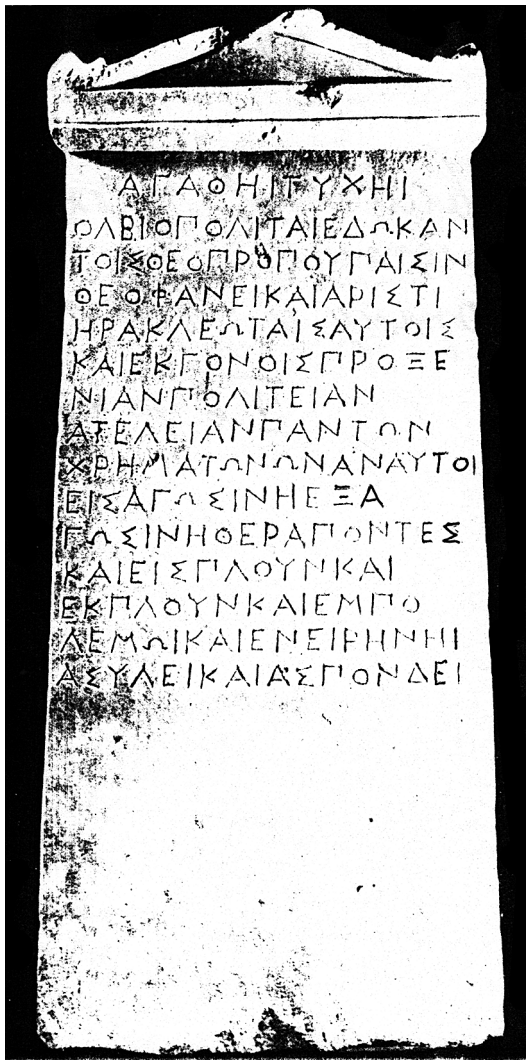 ΑΓΑΘΗΙΤΥΧΗΙ
ΟΛΒΙΟΠΟΛΙΤΑΙΕΔΩΚΑΝ
ΤΟΙΣΘΕΟΠΡΟΠΟΥΠΑΙΣΙΝ
ΘΕΟΦΑΝΕΙΚΑΙΑΡΙΣΤΙ
ΗΡΑΚΛΕΩΤΑΙΣΑΥΤΟΙΣ
ΚΑΙΕΚΓΟΝΟΙΣΠΡΟΞΕ
ΝΙΑΝΠΟΛΙΤΕΙΑΝ
ΑΤΕΛΕΙΑΝΠΑΝΤΩΝ
ΧΡΗΜΑΤΩΝΩΝΑΝΑΥΤΟΙ
ΕΙΣΑΓΩΣΙΝΗΕΞΑ
ΓΩΣΙΝΗΘΕΡΑΠΟΝΤΕΣ
ΚΑΙΕΙΣΠΛΟΥΝΚΑΙ
ΕΚΠΛΟΥΝΚΑΙΕΜΠΟ
ΛΕΜΩΙΚΑΙΕΝΕΙΡΗΝΗΙ
ΑΣΥΛΕΙΚΑΙΑΣΠΟΝΔΕΙ